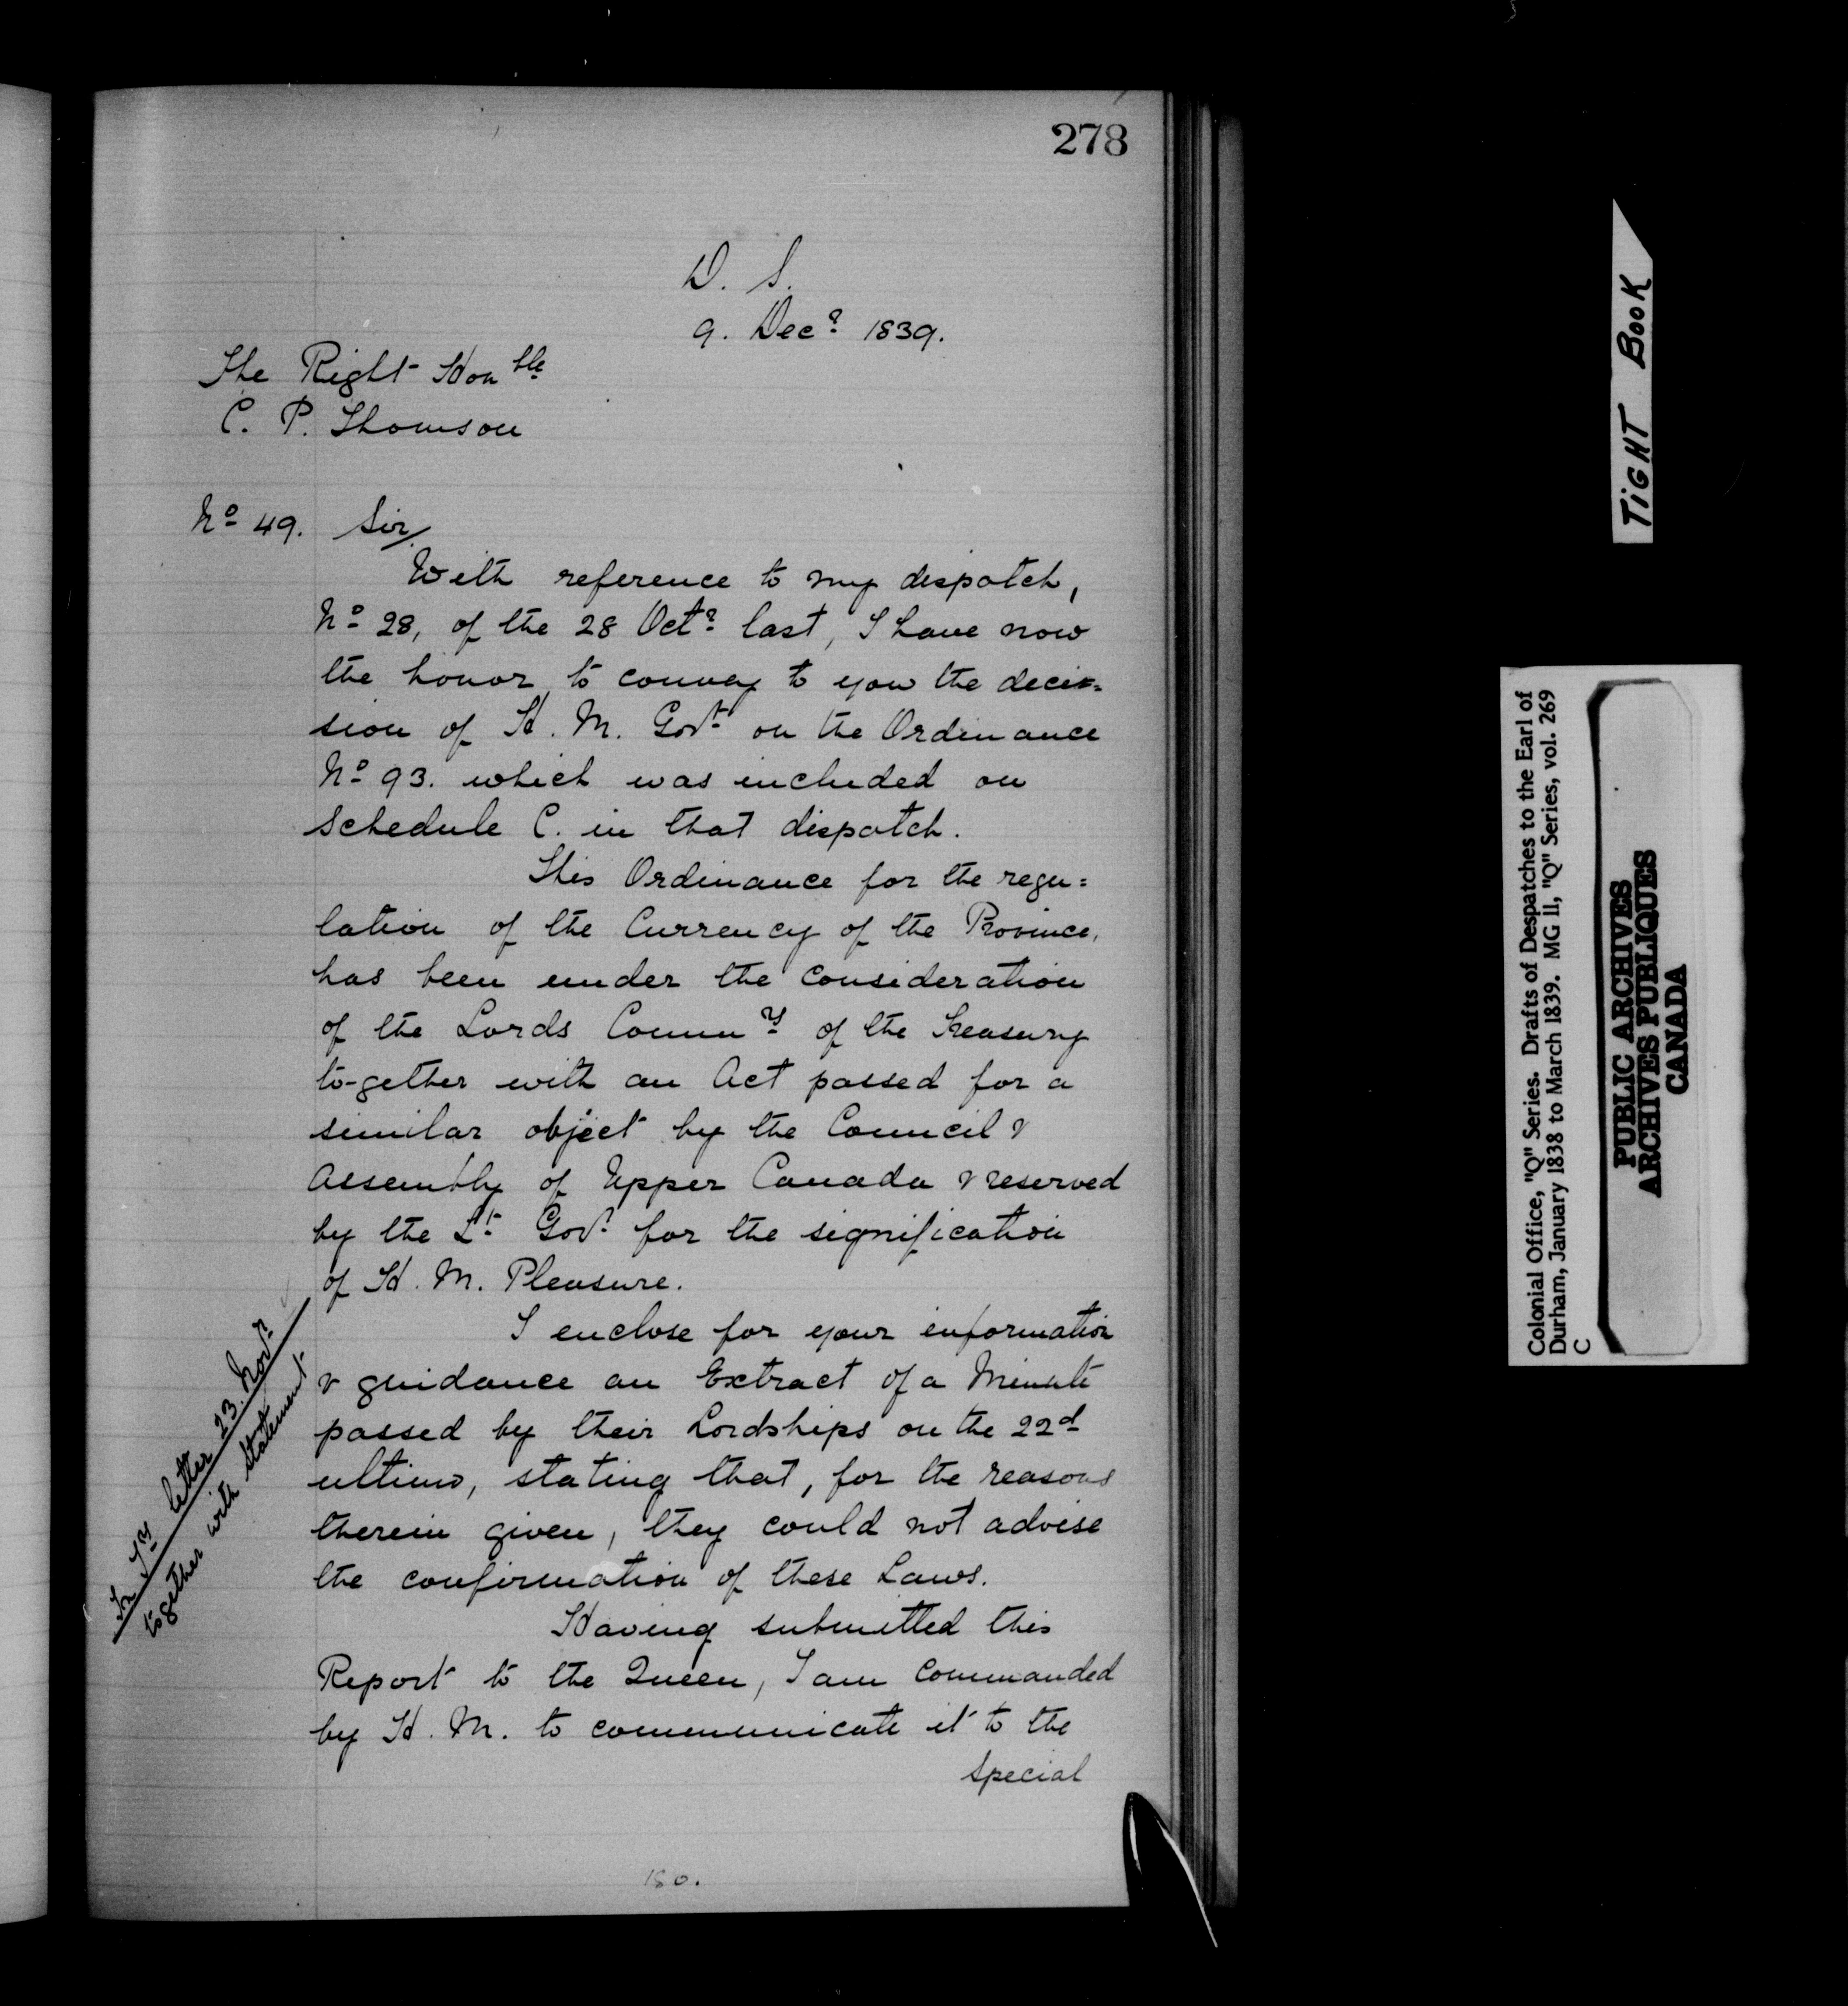 278
D. S.
9. Decr 1839.
The Right Honble
C. P. Thomson
No 49. Sir,
With reference to my dispatch,
No 28, of the 28 Octr last, I have now
the honor to convey to you the deci=
sion of H. M. Govt on the Ordinance
No 93. which was included on
Schedule C. in that dispatch.
This Ordinance for the regu=
lation of the Currency of the Province,
has been under the consideration
of the Lords Commrs of the Treasury
to-gether with an Act passed for a
similar object by the Council &
Assembly of Upper Canada & reserved
by the Lt Govr for the signification
of H. M. Pleasure.
I enclose for your information
& guidance an Extract of a Minute
passed by their Lordships on the 22d
ultimo, stating that, for the reasons
therein given, they could not advise
the confirmation of these Laws.
In Try letter 23. Novr
together with Statement
Having submitted this
Report to the Queen, I am Commanded
by H. M. to communicate it to the
Special
180.
TIGHT BOOK
Colonial Office, "Q" Series. Drafts of Despatches to the Earl of
Durham, January 1838 to March 1839. MG 11, "Q" Series, vol. 269
C
PUBLIC ARCHIVES
ARCHIVES PUBLIQUES
CANADA